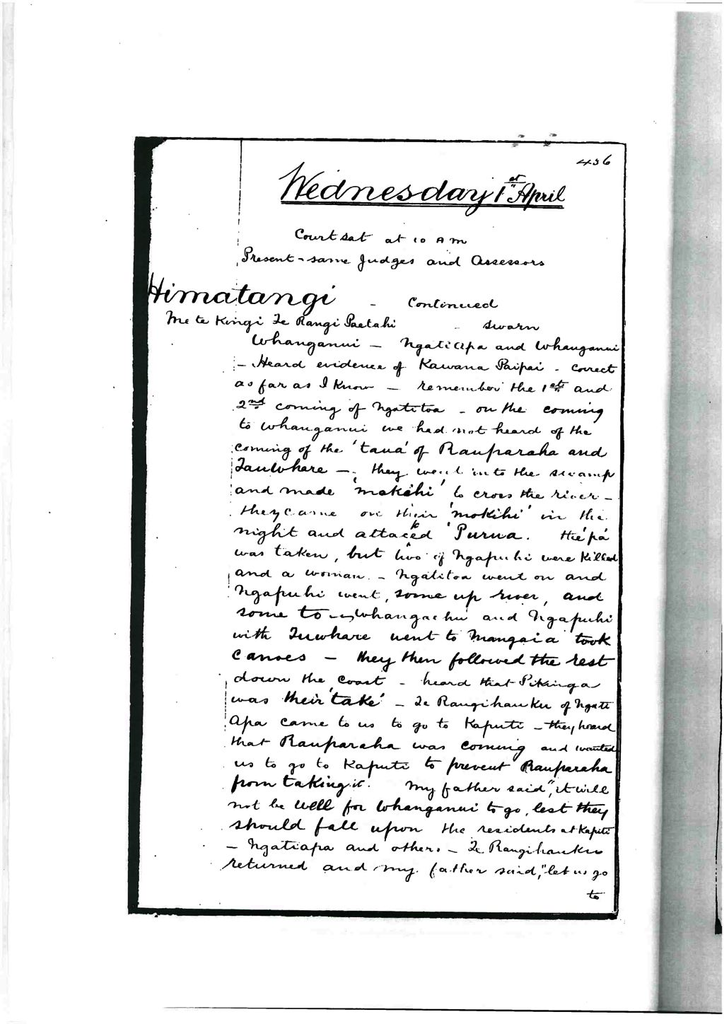 436
Wednesday 1st April
Court sat at 10 A m
Present - same Judges and Assessors
Himatangi - Continued
Me te Kingi Te Rangi Paetahi - sworn
Whanganui - Ngatiapa and Whanganui
- Heard evidence of Kawana Paipai - correct
as far as I know - remember the 1st and
2nd coming of Ngatitoa - on the coming
to Whanganui we had not heard of the
coming of the 'taua' of Rauparaha and
Tauwhare - they went into the swamp
and made 'mokihi' to cross the river -
they came on their 'mokihi' in the
night and attacked 'Purua. the 'pa'
was taken, but two of Ngapuhi were killed
and a woman - Ngatitoa went on and
Ngapuhi went, some up river, and
some to Whangaehu and Ngapuhi
with Tuwhare went to Mangaia took
canoes - they then followed the rest
down the coast - heard that Pikinga
was their 'take' - Te Rangihauku of Ngati
Apa came to us to go to Kaputi - they heard
that Rauparaha was coming and wanted
us to go to Kaputi to prevent Rauparaha
from taking it. My father said, "it will
not be well for Whanganui to go, lest they
should fall upon the residents at Kaputi
- Ngatiapa and others - Te Rangihauku
returned and my father said, "let us go
to